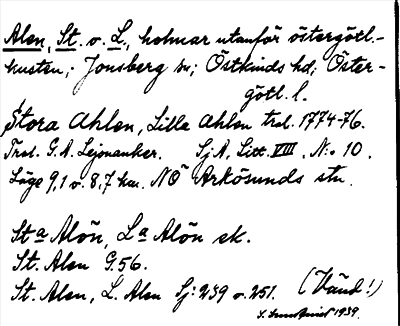 Alen, St. o. L., holmar utanför östergötl.-
kusten; Jonsberg sn; Östkinds hd; Öster-
götl. l.
Stora Ahlen, Lilla Ahlen trol. 1774-76.
Trol. G. A. Lejonanker. Sj. A, Litt. VIII, N:o 10.
Läge 9,1 o. 8,7 km. NÖ Arkösunds stn.
Sta Alön, La Alön ek.
St. Alen G. 56.
St. Alen, L. Alen Sj: 239 o. 251. (Vänd!)
1939.